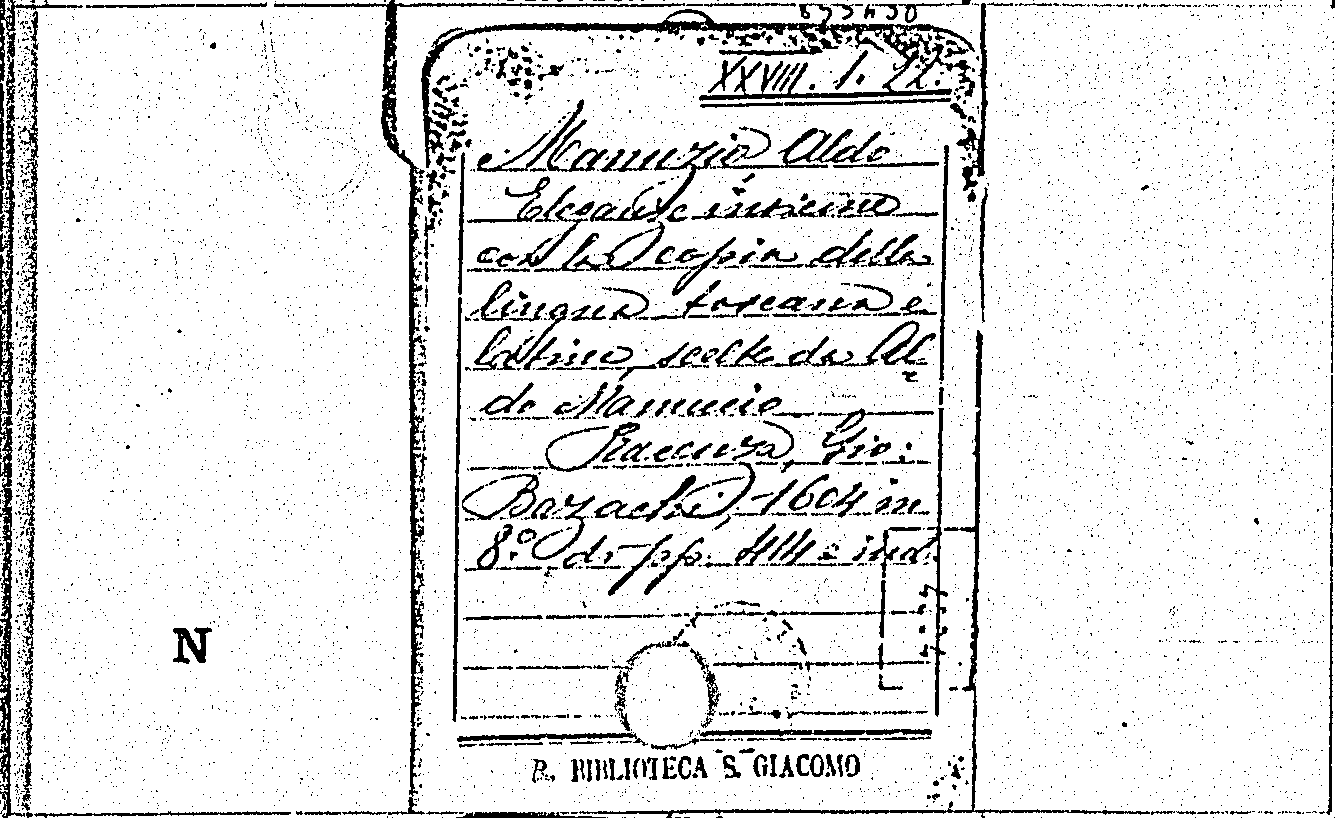 XXVIII. 1. 22.
Manuzio Aldo
Eleganze insieme
con la copia della
lingua toscana e
latina, scelte da Al
do Manucio
Piacenza, Gio:
Bazachi, 1604 in
8.° di pp. 414 e ind.
N
R. BIBLIOTECA S. GIACOMO